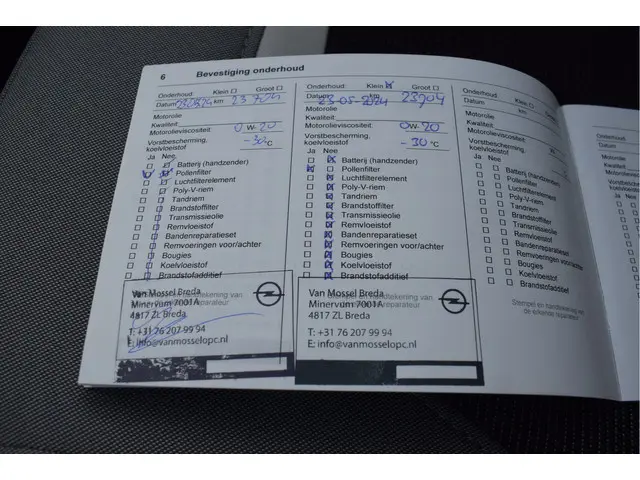 6 Bevestiging onderhoud
Onderhoud: Klein Groot
Datum km
Motorolie
Kwaliteit:
Motorolieviscositeit: 0W-20
Vorstbescherming, koelvloeistof -30 °C
Ja Nee
Batterij (handzender)
Pollenfilter
Luchtfilterelement
Poly-V-riem
Tandriem
Brandstoffilter
Transmissieolie
Remvloeistof
Bandenreparatieset
Remvoeringen voor/achter
Bougies
Koelvloeistof
Brandstofadditief
Van Mossel Breda
Minervum 7001A
4817 ZL Breda
T: +31 76 207 99 94
E: info@vanmosselopc.nl
Onderhoud: Klein Groot
Datum 23-05-2024 km 23904
Motorolie
Kwaliteit:
Motorolieviscositeit: 0W-20
Vorstbescherming, koelvloeistof -30 °C
Ja Nee
Batterij (handzender)
Pollenfilter
Luchtfilterelement
Poly-V-riem
Tandriem
Brandstoffilter
Transmissieolie
Remvloeistof
Bandenreparatieset
Remvoeringen voor/achter
Bougies
Koelvloeistof
Brandstofadditief
Van Mossel Breda
Minervum 7001A
4817 ZL Breda
T: +31 76 207 99 94
E: info@vanmosselopc.nl
Onderhoud: Klein Groot
Datum km
Motorolie
Kwaliteit:
Motorolieviscositeit:
Vorstbescherming, koelvloeistof
Ja Nee
Batterij (handzender)
Pollenfilter
Luchtfilterelement
Poly-V-riem
Tandriem
Brandstoffilter
Transmissieolie
Remvloeistof
Bandenreparatieset
Remvoeringen voor/achter
Bougies
Koelvloeistof
Brandstofadditief
Stempel en handtekening van
de erkende reparateur